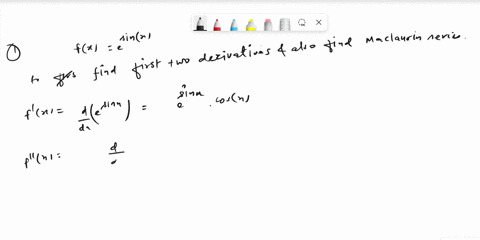 ① f(x) = e^sin(x)
to find first two derivations & also find Maclaurin series.
f'(x) = d/dx (e^sinx) = e^sinx . cos(x)
f''(x) = d/